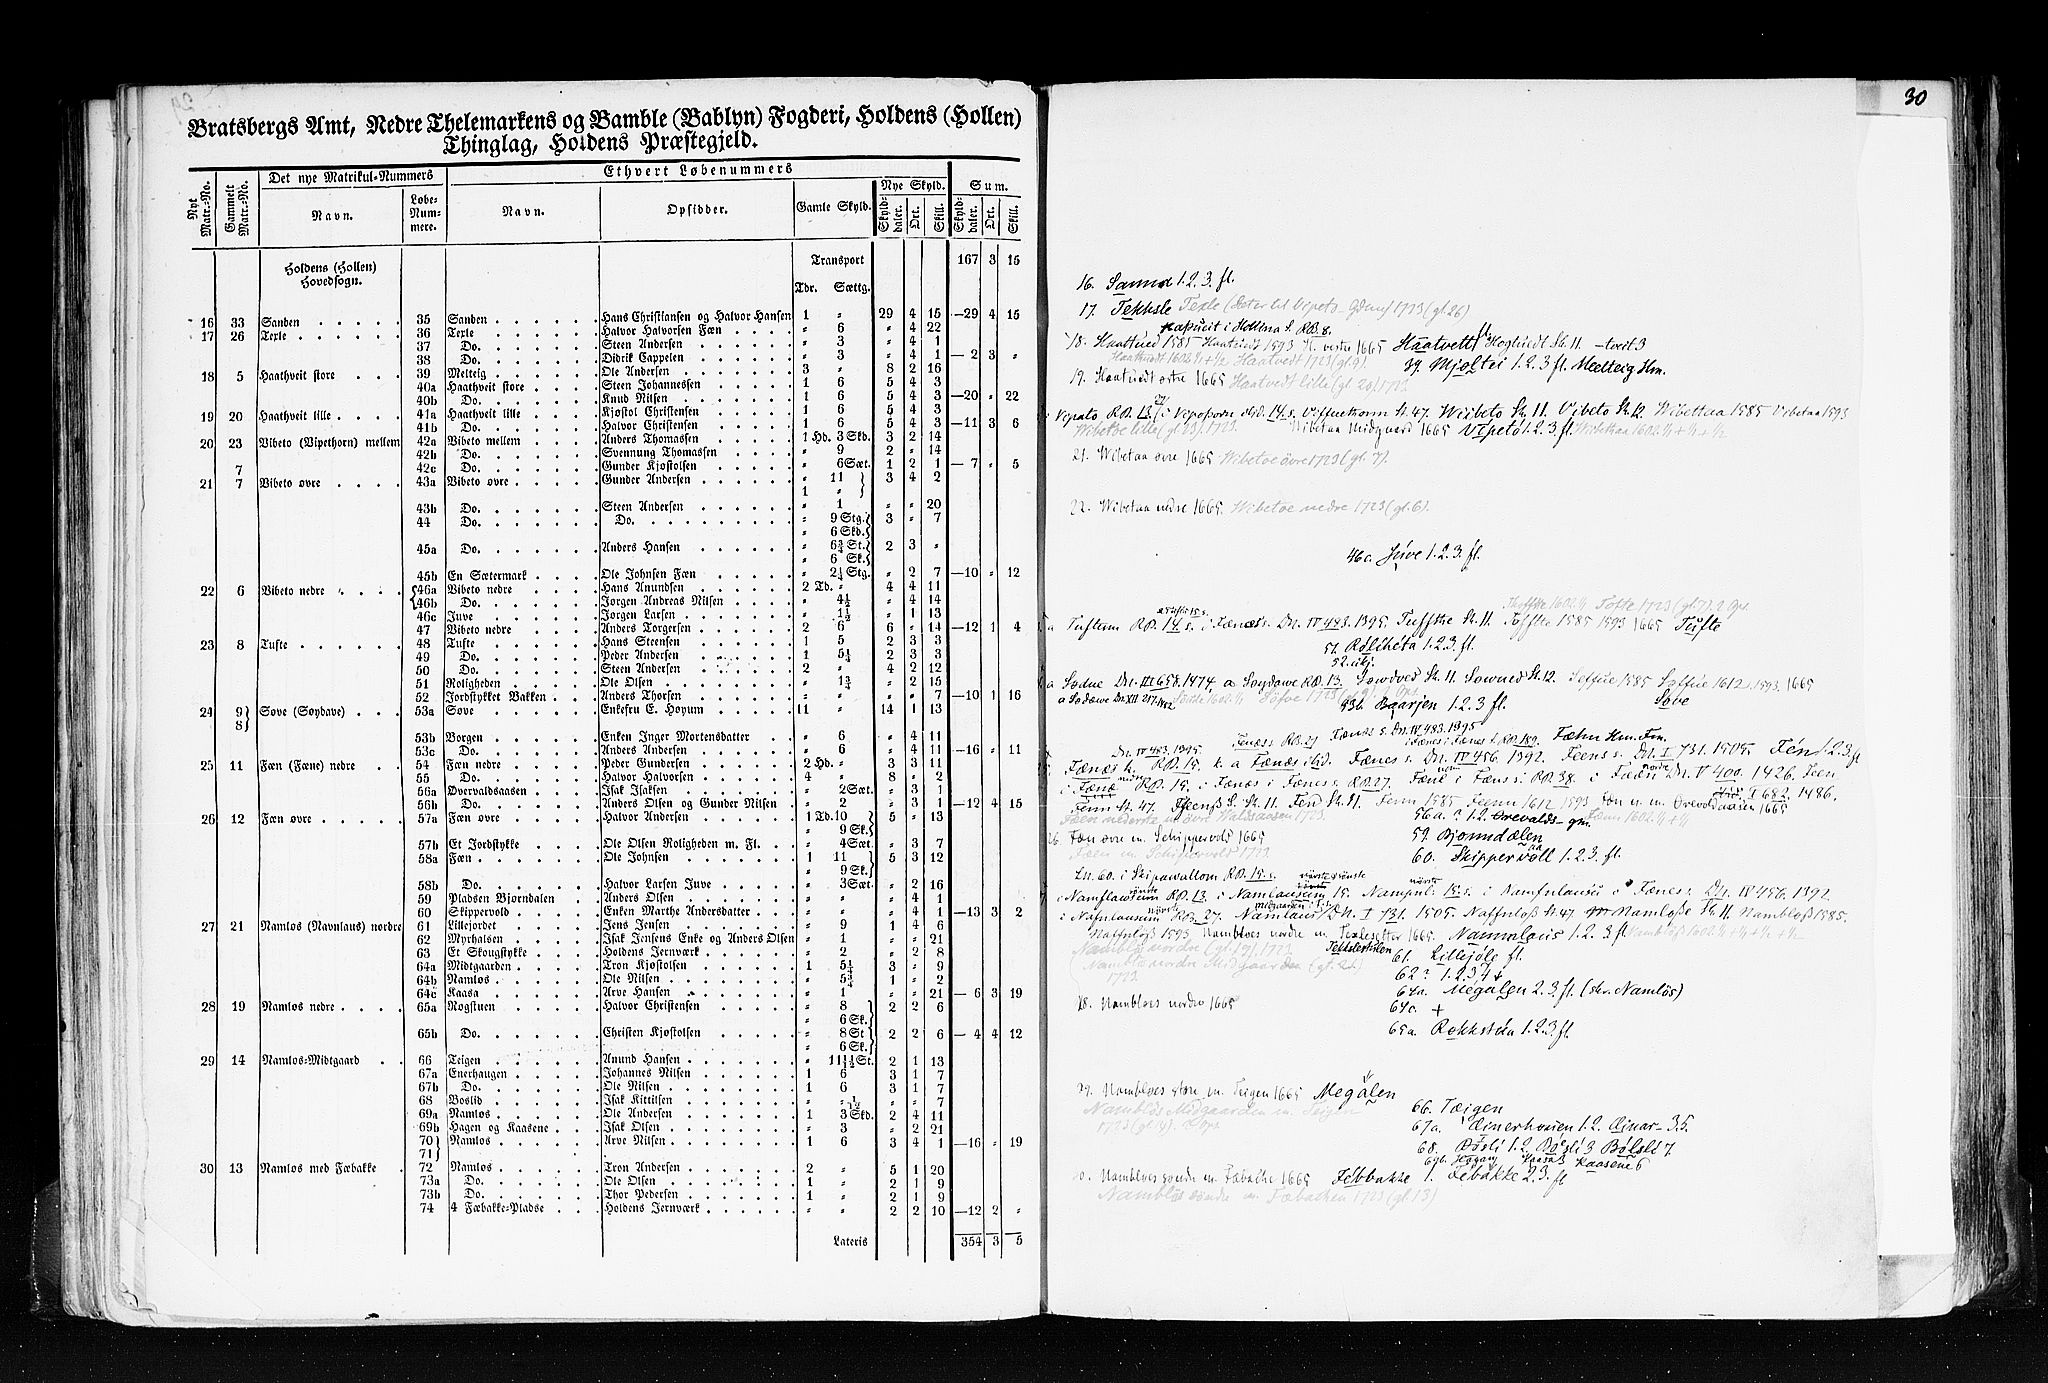 Bratsbergs Amt, Nedre Thelemarkens og Bamble (Bablyn) Fogderi, Holdens (Hollen)
Thinglag, Holdens Præstegjeld.
Nyt Matr.-No. Gammelt Matr.-No. Det nye Matrikul-Nummers Ethvert Løbenummers
Navn. Løbe-Num-mere. Navn. Opsidder. Gamle Skyld. Nye Skyld. Sum.
Skylddaler. Ort. Skill. Skylddaler. Ort. Skill.
Holdens (Hollen) Hovedsogn. Transport 167 3 15
Tdr. Sættg.
16 33 Sanden 35 Sanden Hans Christiansen og Halvor Hansen 1 " 29 4 15 —29 4 15
17 26 Texle 36 Texle Halvor Halvorsen Fæn " 6 " 4 22
37 Do. Steen Andersen " 3 " 4 1
38 Do. Didrik Cappelen " 3 " 4 1 — 2 3 "
18 5 Haathveit store 39 Melteig Ole Andersen 3 " 8 2 16
40a Haathveit store Steen Johannessen 1 6 5 4 3
40b Do. Knud Nilsen 1 6 5 4 3 —20 " 22
19 20 Haathveit lille 41a Haathveit lille Kjøstol Christensen 1 6 5 4 3
41b Do. Halvor Christensen 1 6 5 4 3 —11 3 6
20 23 Vibeto (Vipethorn) mellem 42a Vibeto mellem Anders Thomassen 1 Hd. 3 Skd. 2 2 14
42b Do. Svennung Thomassen " 9 2 " 14
7 42c Do. Gunder Kjøstolsen " 6 Sæt. 1 2 1 — 7 " 5
21 7 Vibeto øvre 43a Vibeto øvre Gunder Andersen " 11 } 3 4 2
1 " }
43b Do. Steen Andersen " 1 " " 20
44 Do. Do. " 9 Stg. } 3 " 7
" 6 Skd. }
45a Do. Anders Hansen " 6¾ St. } 2 3 "
" 6 Sk. }
45b En Sætermark Ole Johnsen Fæn " 2¼ Stg. " 2 7 —10 " 12
22 6 Vibeto nedre { 46a Vibeto nedre Hans Anundsen 2 Td. " 4 4 11
46b Do. Jørgen Andreas Nilsen " 4½ " 4 14
46c Juve Jørgen Larsen " 1½ " 1 13
47 Vibeto nedre Anders Torgersen 2 6 6 " 14 —12 1 4
23 8 Tufte 48 Tufte Hans Steensen 1 5 2 3 3
49 Do. Peder Andersen 1 5¼ 2 3 3
50 Do. Steen Andersen 2 " 4 2 12
51 Roligheden Ole Olsen " 1¾ " 2 15
52 Jordstykket Bakken Anders Thorsen " " " " 7 —10 1 16
24 9 } 8 } Søve (Søydave) 53a Søve Enkefru E. Hoyum 11 " 14 1 13
53b Borgen Enken Inger Mortensdatter " 6 " 4 11
53c Do. Anders Andersen " 6 " 4 11 —16 " 11
25 11 Fæn (Fæne) nedre 54 Fæn nedre Peder Gundersen 2 Hd. " 3 3 11
55 Do. Halvor Halvorsen 4 " 8 " 2
56a Overvaldsaasen Isak Isaksen " 2 Sæt. " 3 1
56b Do. Anders Olsen og Gunder Nilsen " 2 " 3 1 —12 4 15
26 12 Fæn øvre 57a Fæn øvre Halvor Andersen 1 Td. 10 } 5 " 13
" 9 Sk. }
57b Et Jordstykke Ole Olsen Roligheden m. Fl. " 4 Sæt. " 3 7
58a Fæn Ole Johnsen 1 11 } 5 3 12
" 9 Sk. }
58b Do. Halvor Larsen Juve " 3 Sæt. " 2 16
59 Pladsen Bjørndalen Anders Olsen " " " 4 1
60 Skippervold Enken Marthe Andersdatter " " " 4 1 —13 3 2
27 21 Namlos (Navnlaus) nordre 61 Lillejordet Jens Jensen " 9 1 4 6
62 Myrhalsen Isak Jensens Enke og Anders Olsen " 1 " " 21
63 Et Skougstykke Holdens Jernværk " 2 " 2 8
64a Midtgaarden Tron Kjøstolsen 1 5¼ 3 " 9
64b Namlos Ole Nilsen " 5¾ 1 " 2
64c Kaasa Arve Hansen " 1 " " 21 — 6 3 19
28 19 Namlos nedre 65a Rogstuen Halvor Christensen " 8 } 2 2 6
" 6 Sk. }
65b Do. Christen Kjøstolsen " 8 St } 2 2 6 — 4 4 12
" 6 Sk. }
29 14 Namlos-Midtgaard 66 Teigen Anund Hansen " 11½ St. 2 1 13
67a Enerhaugen Johannes Nilsen 1 6 3 1 7
67b Do. Ole Nilsen 1 6 3 1 7
68 Boslid Isak Kittilsen " ½ " " 7
69a Namlos Ole Andersen 1 3 Skd. 2 4 11
69b Hagen og Kaasene Isak Olsen " 3 " 2 21
70 } Namlos Arve Nilsen 1 6 3 4 1 —16 " 19
71 }
30 13 Namlos med Fæbakke 72 Namlos Tron Andersen 2 " 5 1 20
73a Do. Ole Olsen 1 " 2 1 9
73b Do. Thor Pedersen 1 " 2 1 9
74 4 Fæbakke-Pladse Holdens Jernværk " " 2 2 10 —12 2 "
Lateris 354 3 5
30
16. Sannd 1.2.3. fl.
17. Tekksle Texle (Deter til Vipeto 1723 (gl. 26)
i Hollena S. RB. 8.
18. Haattued 1585 Haatuedt 1593 H. vestre 1665 Haatvett Hogluedt St. 11. –tveit 3
Haatuedt 1602 Haatvedt 1723 (gl. 9). 39. Mjøltei 1.2.3 fl. Meelteig Hm.
19. Haatuedt østre 1665 Haatvedt lille (gl. 20) 1723
Vepato RB. 13. i Vepoporne 14. s. St. 47. Wiibeto St. 11. Vibeto St. 12. Wibettaa 1585 Vibetaa 1593
Wibetoe lille (gl. 23). 1723. Wibetaa Midgaard 1665 Vípeto 1.2.3. fl.
21. Wibetaa øvre 1665 Wibetoe øvre 1723 (gl. 7).
22. Wibetaa nedre 1665. Wibetoe nedre 1723 (gl. 6).
46c. Júve 1.2.3. fl.
Tofte 1723 (gl. 7). 2 Ops.
a Tuftem RB. 14. s. i Fænes s. Dn. IV 483. 1395. Tuffthe St. 11. Tøfftte 1585 1593 1665 Tufte
51. Roliheta 1.2.3. fl.
52. ukj.
a Sødue Dn. III 658. 1474, a Søydawe RB. 13. Søwdved St. 11. Søwued St. 12. Søffue 1585 Søffue 1612. 1593. 1665
a Sødawe Dn. XII 217. 1482 Søfve 1723 53b. Baarjen 1.2.3 fl. Søve
Dn. IV 483. 1395. Fænes s. RB. 27 Fænes s. Dn. IV 483. 1395 Fæhn Hm. Fm.
i Fænes k. RB. 15. k. a Fænes ibid. Fænes s. Dn. IV 456. 1392. Feens s. Dn. I 731. 1505. Fén 1.2.3. fl
i Fæne RB. 15. i Fænes i Fænes s. RB. 27. Fæne i Fæns s. RB. 38. i Faæn Dn. V 400. 1426. Feen
Fenn St. 47. Feenß S. St. 11. Fen St. 11. Fenn 1585 Feenn 1612 1593 Fæn n. m. Orevoldaasen 1665 I 682. 1486.
Fæen nederste m. øvre Waldsaasen 1723. 56a. ? 1.2. Orevalds-
26. Fæn øvre m. Schippervold 1665 59. Bjønndalen
Fæen m. Schippervold 1723. 60. Skippervoll 1.2.3. fl.
Ln. 60. i Skipawallom RB. 15. s.
i Namflausum RB. 13. i Namlausum 15. Nampnl. 15. s. i Namfnlausu i Fænes s. Dn. IV 456. 1392.
i Nafnlausum RB. 27. Namlaus Dn. I 731. 1505. Naffnløß St. 47 Namløße St. 11. Nambløß 1585.
Naffnløß 1593 Nambløes nordre m. Texlesetter 1665. Nammlaus 1.2.3. fl
Nambløs nordre (gl. 19). 1723. 61. Lillejøle fl.
Nambløs nordre Midgaarden (gl. 21) 62? 1.2.3 +
1723. 64a. Megalen 2.3. fl. (skr. Namløs)
28. Nambløes nedre 1665 64c. +
65a. Rokkstúa 1.2.3 fl.
29. Nambløes store m. Teigen 1665 Megålen
Nambløs Midgaarden m. Teigen 66. Tæigen
1723 (gl. 14). 2 Ops. 67a. Æinerhouien 1.2. Æinar– 3.5.
68. Bøsli 1.2. Bøsli 3 Bølsli 7
69b. Kaasa 3 Kaasene 6
Nambløes søndre m. Fæbache 1665 Fébbakke 1. Febakke 2.3. fl
Nambløs søndre m. Fæbachen 1723 (gl. 13)